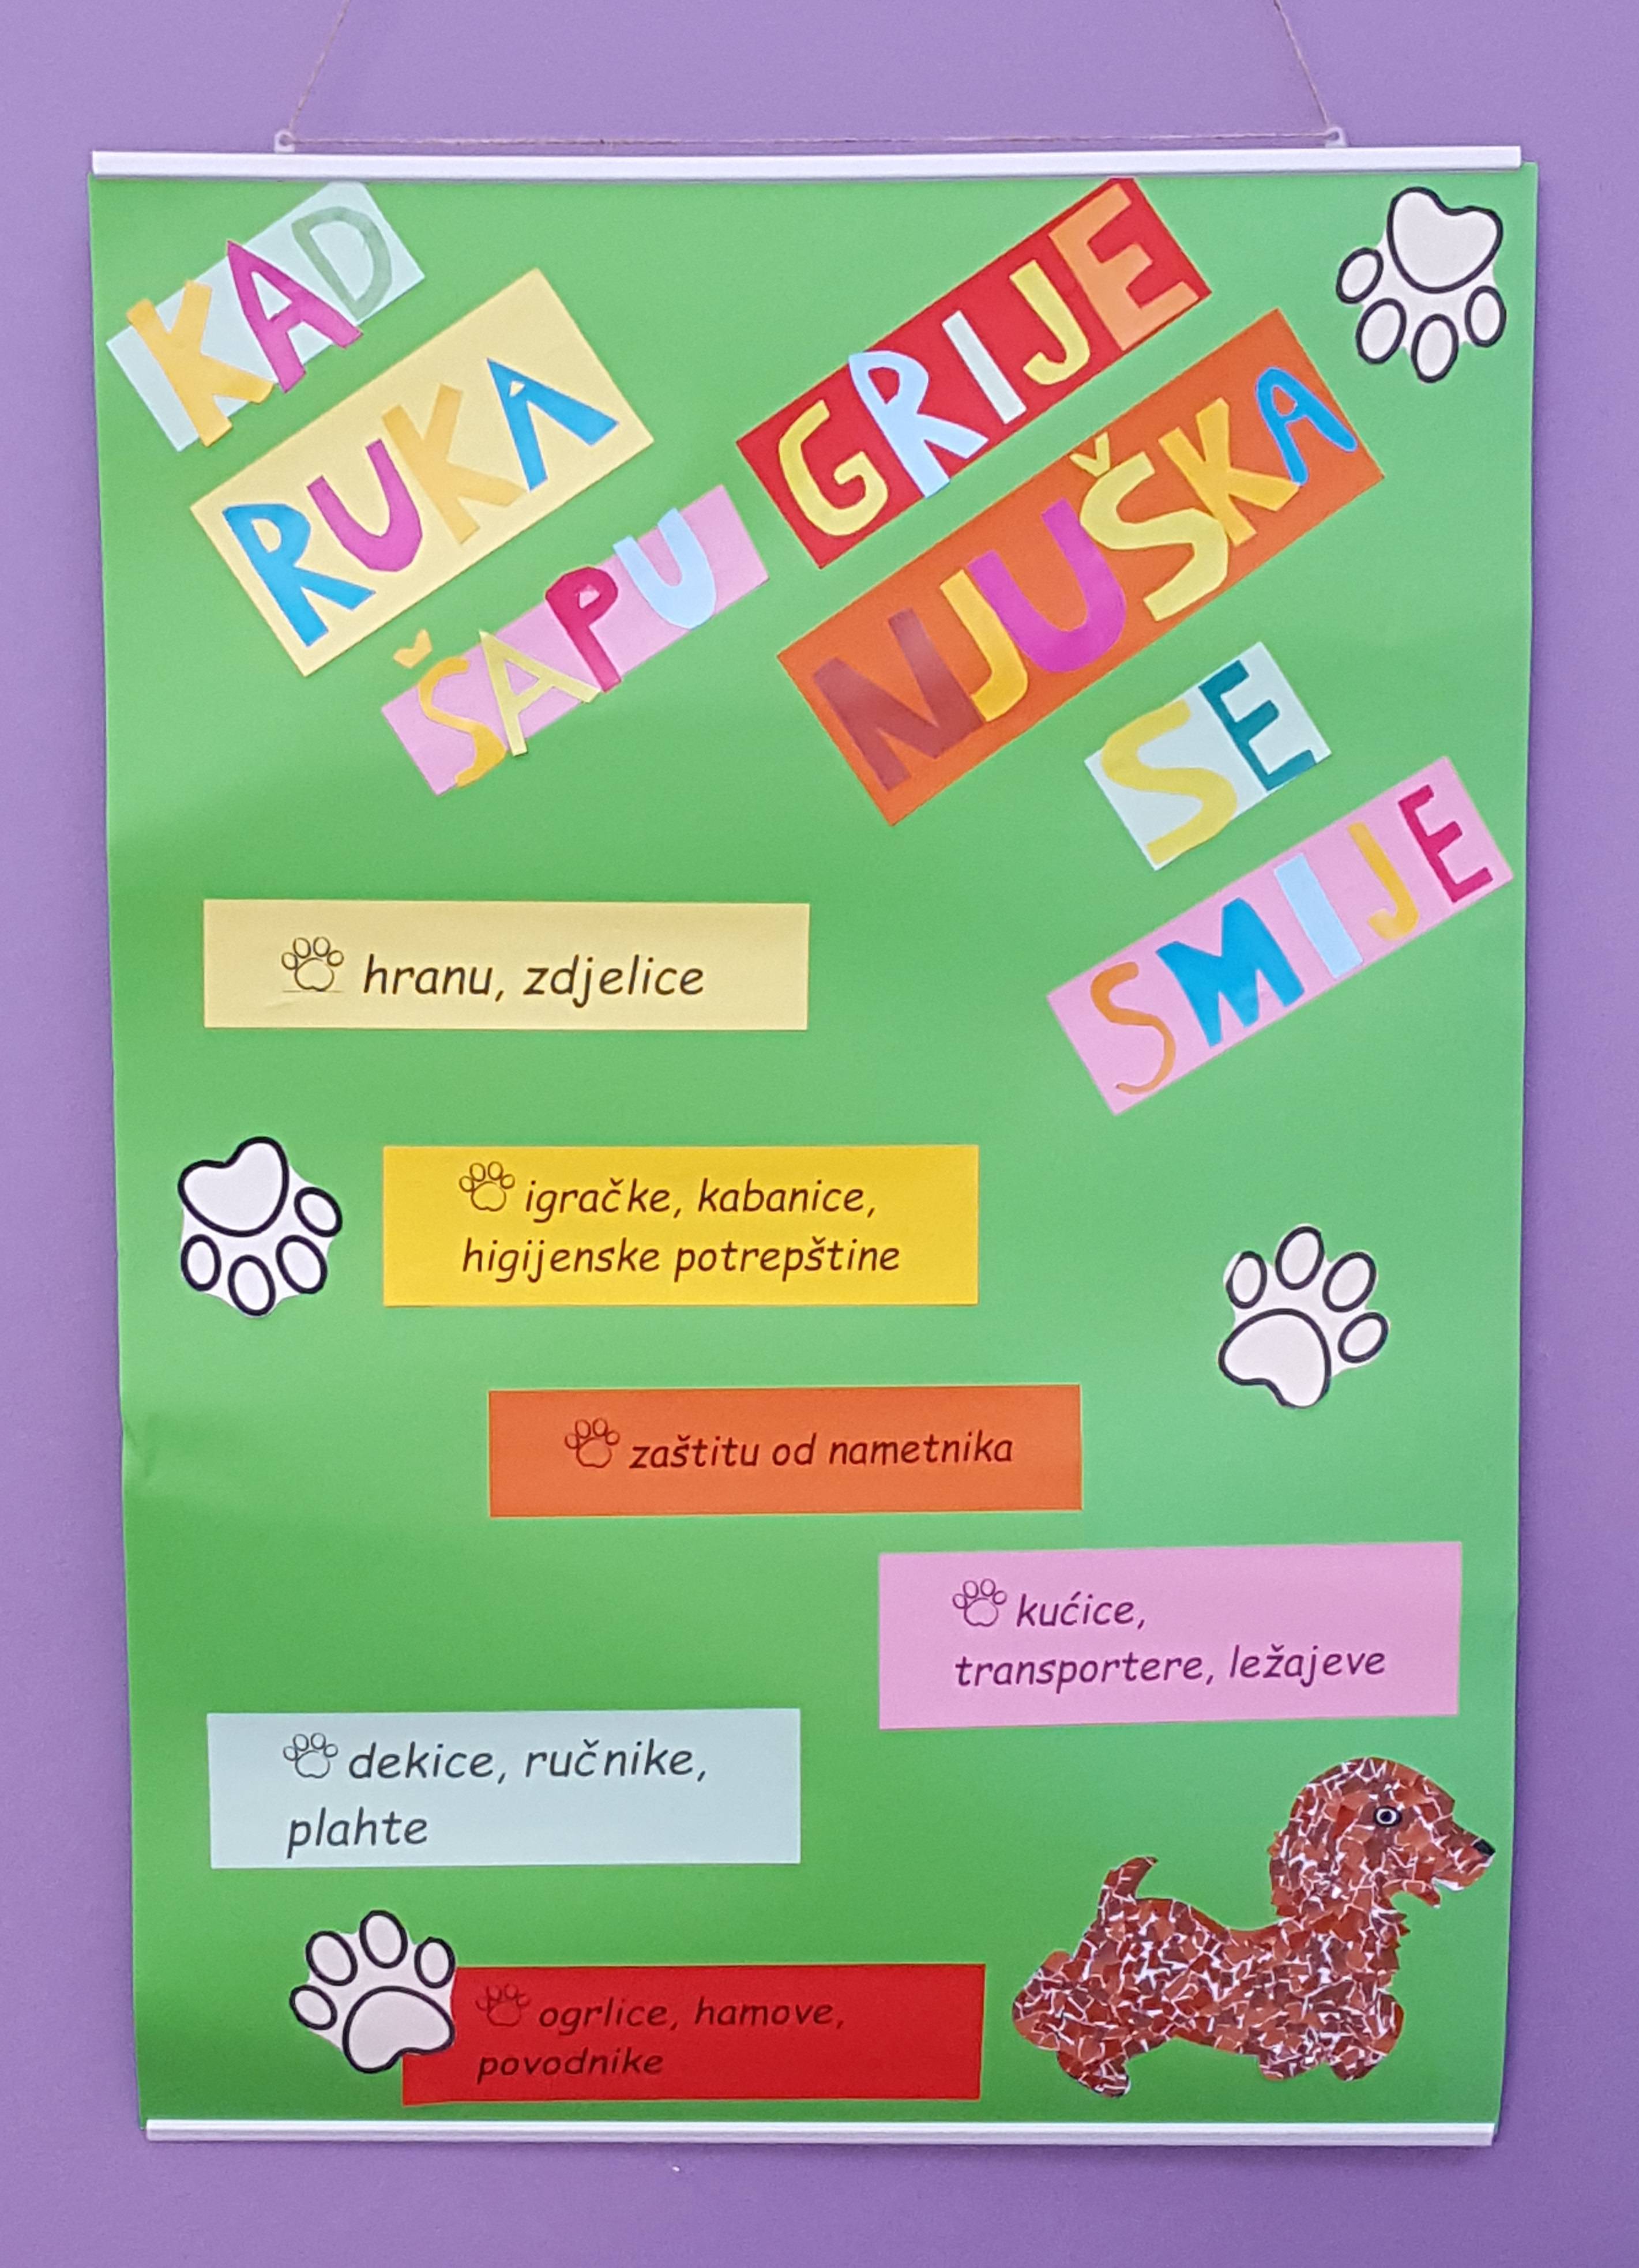 KAD
RUKA
ŠAPU
GRIJE
NJUŠKA
SE
SMIJE
hranu, zdjelice
igračke, kabanice,
higijenske potrepštine
zaštitu od nametnika
kućice,
transportere, ležajeve
dekice, ručnike,
plahte
ogrlice, hamove,
povodnike